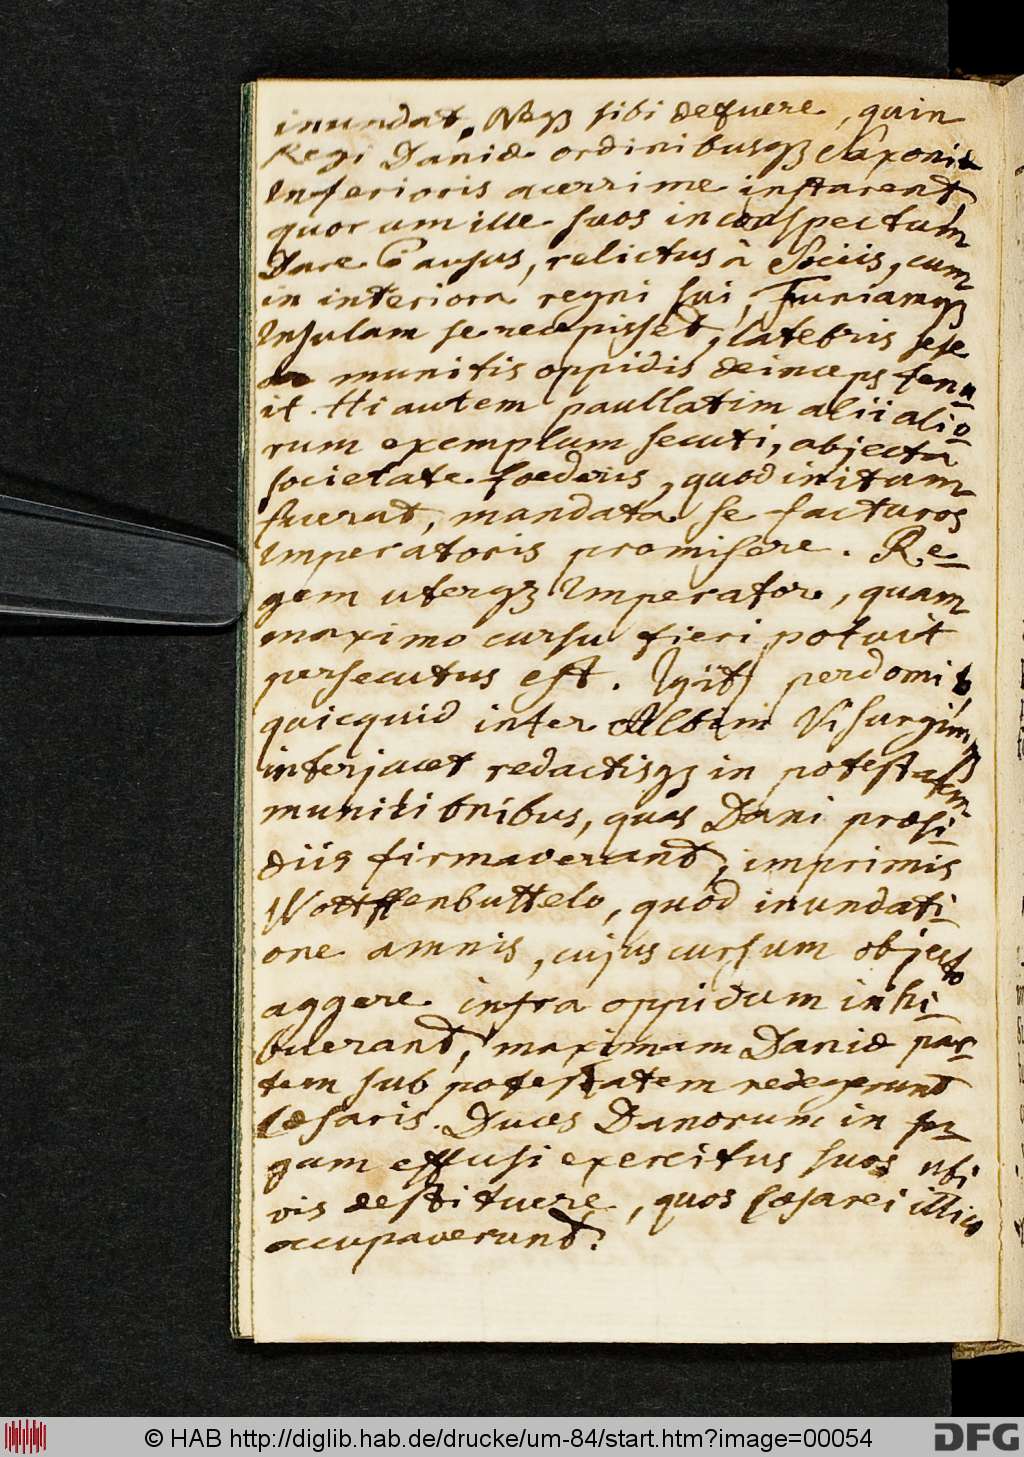 inundat. Neqꝫ sibi defuere, quin
Regi Daniæ ordinibusqꝫ Saxoniæ
Inferioris acerrime instarent,
quorum ille suos in conspectum
Dare ausus, relictus à Sociis, cum
in interiora regni sui, Fioniamqꝫ
Insulam se recepisset, latebris sese
ac munitis oppidis deinceps tenu
it. Hi autem paullatim alii alio
rum exemplum secuti, abjecta
societate foederis, quod initum
fuerat, mandata se facturos
Imperatoris promisere. Re-
gem uterqꝫ Imperator, quam
maximo cursu fieri potuit
persecutus est. Igitur perdomito,
quicquid inter Albim Visurgimqꝫ
interjacet redactisqꝫ in potestatem
munitionibus, quas Dani præsi-
diis firmaverant, imprimis
Wolffenbuttelo, quod inundati-
one amnis, cujus cursum objecto
aggere infra oppidum inhi-
buerant, maximam Daniæ par-
tem sub potestatem redegerunt
Cæsaris. Duces Danorum in fu-
gam effusi exercitus suos ubi
vis destituere, quos Cæsarei illico
occupaverunt.
© HAB http://diglib.hab.de/drucke/um-84/start.htm?image=00054
DFG